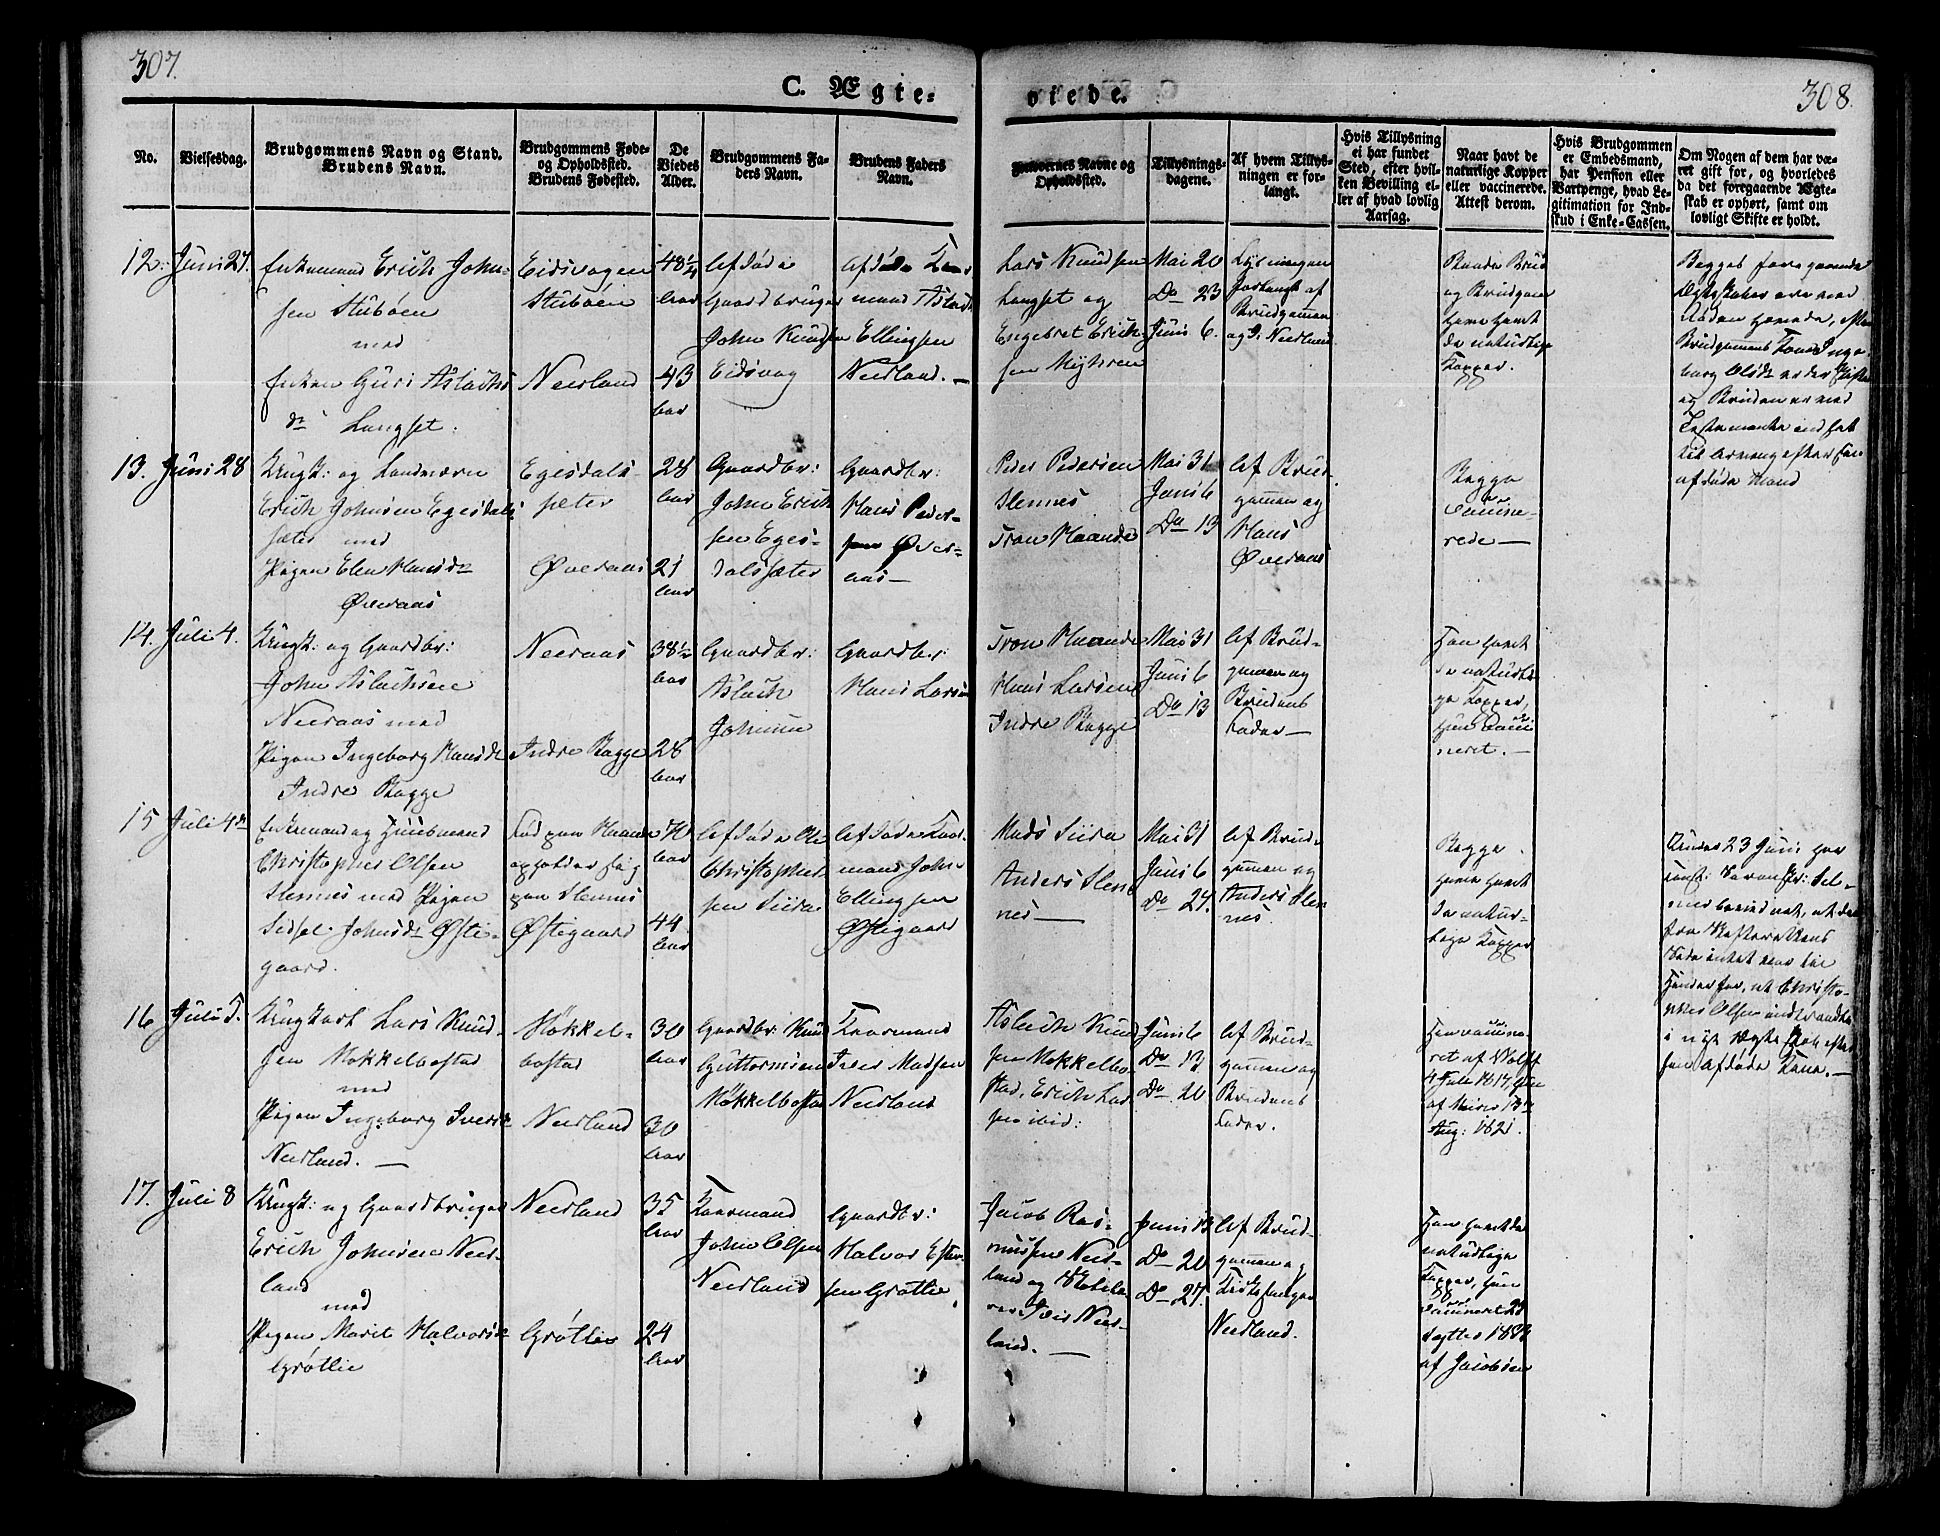 307.
308.
C. Ægte=
viede.
No.
Vielsesdag.
Brudgommens Navn og Stand.
Brudens Navn.
Brudgommens Føde=
og Opholdssted.
Brudens Fødested.
De
Viedes
Alder.
Brudgommens Fa=
ders Navn.
Brudens Faders
Navn.
Forlovernes Navne og
Opholdssted.
Tillysnings=
dagene.
Af hvem Tillys=
ningen er for=
langt.
Hvis Tillysning
ei har fundet
Sted, efter hvil=
ken Bevilling el=
ler af hvad lovlig
Aarsag.
Naar havt de
naturlige Kopper
eller vaccinerede.
Attest derom.
Hvis Brudgommen
er Embedsmand,
har Pension eller
Vartpenge, hvad Le=
gitimation for Ind=
skud i Enke=Cassen.
Om Nogen af dem har væ=
ret gift for, og hvorledes
da det foregaaende Ægte=
skab er ophørt, samt om
lovligt Skifte er holdt.
12.
Juni 27.
Enkemand Erich John=
sen Stuböen
med
Enken Guri Aslachs
dr Langset.
Eidsvogen
Stuböen
Neerland
48½
Aar
43
Aar
Afdöde
Gaardbruger
John Knudsen
Eidsvog
Afdöde
mand Aslach
Ellingsen
Neerland. —
Lars Knudsen
Langset og
Engebret Erich=
sen Myhren
Mai 20
Do 23
Juni 6.
Lysningen
forlangt af
Brudgommen
og Neerland
Baade Brud
og Brudgom
have havt
de naturlige
Kopper.
Begges foregaaende
Ægteskaber ere ved
Döden hævede, efter
Brudgommens Kone Inge=
borg er der Skifte
og Bruden er med
til efter sin
afdöde Mand
13.
Juni 28
Ungk: og Landværn
Erich Johnsen Egesdals
sæter med
Pigen Elen Hansdr
Øveraas
Egesdals
sæter
Øveraas
28
Aar
21
Aar
Gaardbr:
John Erich
sen Eges=
dalssæter
Gaardbr:
Hans Peder=
sen Øver=
aas —
Peder Pedersen
Slenes
Tron Haande
Mai 31
Juni 6
Do 13
Af Brud
gommen og
Hans
Øveraas
Begge
vaccine=
rede —
14.
Juli 4.
Ungk: og Gaardbr:
John Aslachsen
Neeraas med
Pigen Ingeborg Hansdr
Indre Bagge
Neeraas
Indre Bagge
38½
Aar
28
Aar
Gaardbr:
Aslach
Johnsen
Gaardbr:
Hans Larsen
Tron Haande
Hans Larsen
Indre Bagge
Mai 31
Juni 6
Do 13
Af Brud=
gommen og
Brudens
Fader —
Han havt
de naturli=
ge Kopper,
hun vacci
neret. —
15
Juli 4de
Enkemand og Huusmand
Christopher Olsen
Slennes med Pigen
Sidsel Johnsdr Østi=
gaard.
Föd paa Haande
opholder sig
paa Slennes
Østigaard
Aar
44
Aar
Afdöde Ole
Christopher
sen Siira
Afdöde Kaar=
mand John
Ellingsen
Østigaard
Mads Siira
Anders Slen
nes —
Mai 31
Juni 6
Do 27.
Af Brud=
gommen og
Anders Slen
nes.
Begge
have havt
de natur=
lige Kopper
23 Juni har
Sel=
mer bevidnet, at der
fra Skifterettens
Side intet var til
Hinder for, at Christo=
pher Olsen indtraadte
i nyt Ægteskab efter
sin afdöde Kone. —
16
Juli 5.
Ungkarl Lars Knud=
sen Mökkelbostad
med
Pigen Ingeborg Iversdr
Neerland. —
Mökkel=
bostad
Neerland
30
Aar
30
Aar
Gaardbr: Knud
Guttormsen
Mökkelbostad
Kaarmand
Iver Madsen
Neerland
Aslach Knud
sen Mökkelbo
stad, Erich Lar
sen ibid:
Juni 6
Do 13
Do 20
Af Brud=
gommen og
Brudens
Fader.
Han vaccine=
ret af Wolff
4 Juli 1817, hun
af 13de
Aug: 1821.
17.
Juli 8
Ungk: og Gaardbruger
Erich Johnsen Neer=
land
med
Pigen Marit Halvorsdr
Gröttie
Neerland
Gröttie
35
Aar
24
Aar
Kaarmand
John Olsen
Neerland
Gaardbr:
Halvor Ester
sen Gröttie.
Jacob Ras=
mussen Neer=
land og
Neer=
land. —
Juni 13
Do 20
Do 27.
Af Brud=
gommen og
Neerland.
Han havt de
naturlige
Kopper, hun
vaccineret 22
af Jacobsen